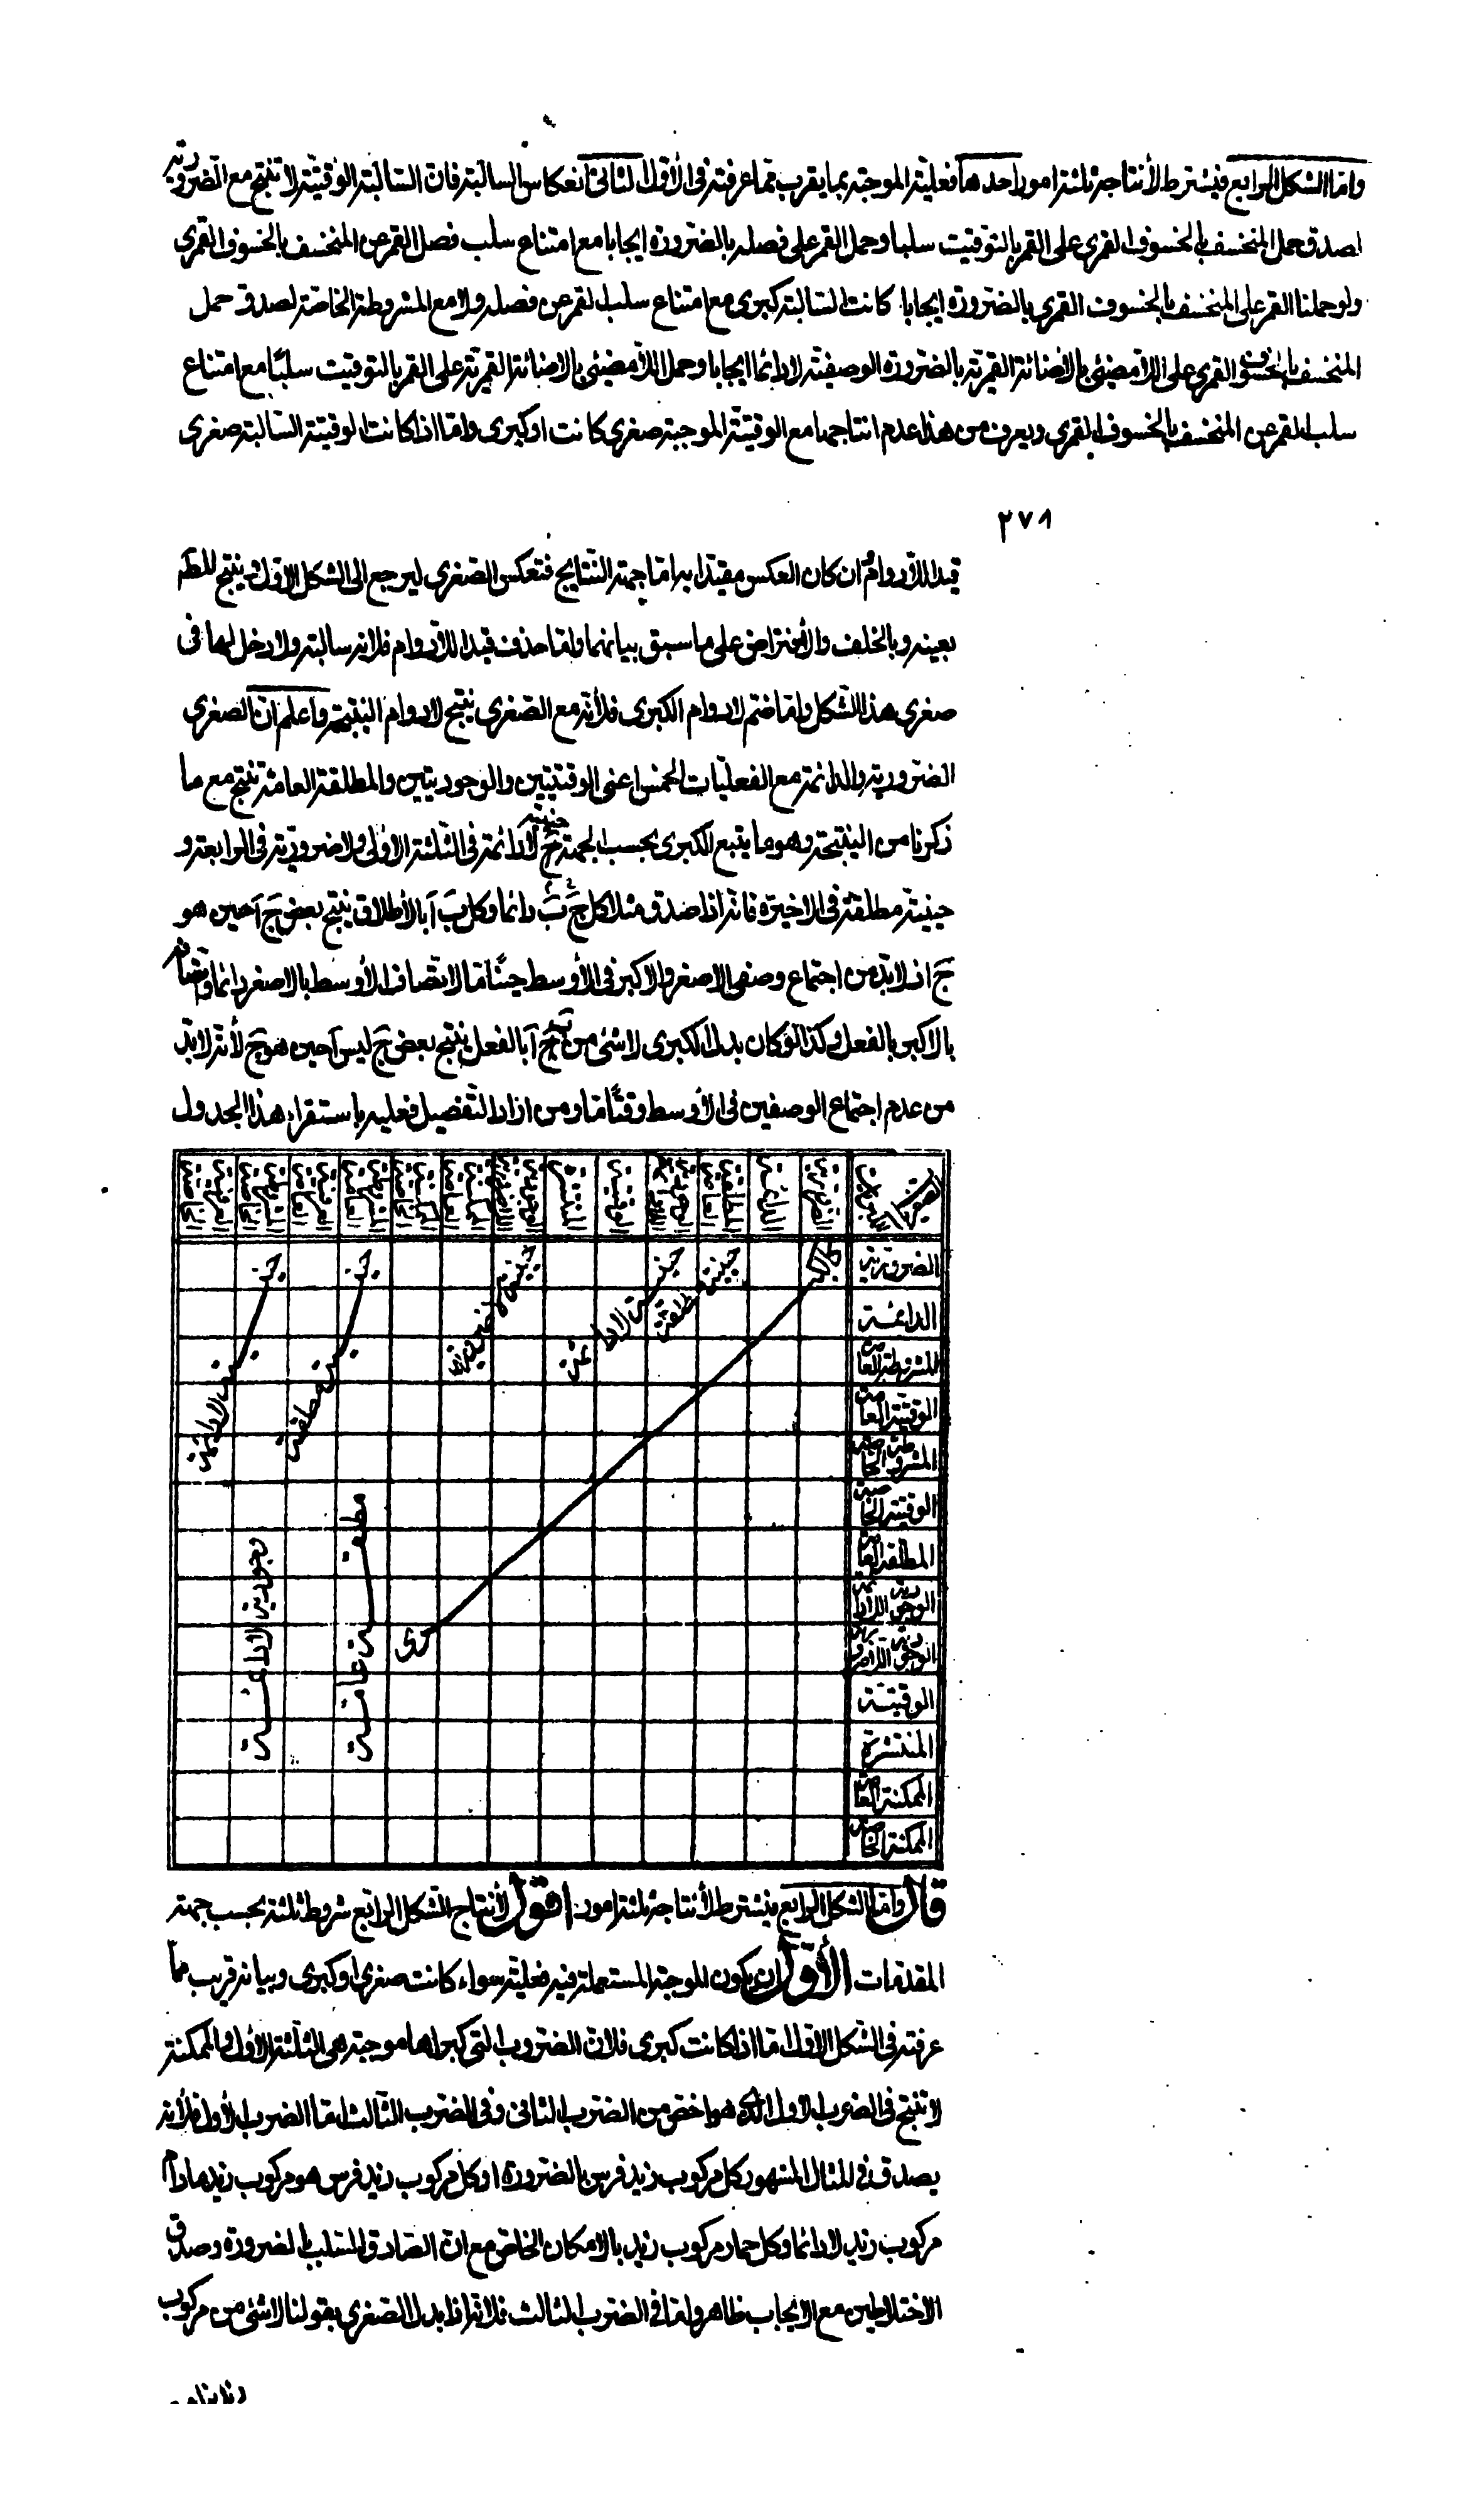 واما الشكل الرابع فيشترط لأنتاجه ثلثة امور احدها فعلية الموجبة بما يقرب مما عرفته فى الأول الثانى انعكاس السالبة فان السالبة الوقتية لا تنتج مع الضرورية
لصدق حمل المنخسف بالخسوف القمرى على القمر بالتوقيت سلبا وحمل القمر على فصله بالضرورة ايجابا مع امتناع سلب فصل القمر عن المنخسف بالخسوف القمرى
ولو حملنا القمر على المنخسف بالخسوف القمرى بالضرورة ايجابا كانت السالبة كبرى مع امتناع سلب القمر عن فصله ولا مع المشروطة الخاصة لصدق حمل
المنخسف بالخسوف القمرى على اللامضيئ بالاضائة القمرية بالضرورة الوصفية لا دائما ايجابا وحمل اللامضيئ بالاضائة القمرية على القمر بالتوقيت سلبًا مع امتناع
سلب القمر عن المنخسف بالخسوف القمرى ويعرف من هذا عدم انتاجها مع الوقتية الموجبة صغرى كانت او كبرى واما اذا كانت الوقتية السالبة صغرى
٢٧٨
قيد اللادوام ان كان العكس مقيدا به اما جهة النتايج فتعكس الصغرى ليرجع الى الشكل الاول و ينتج للط
بعينه وبالخلف والأفتراض على ما سبق بيانهما وانما حذف قيد اللادوام فلانه سالبة ولا دخل لها فى
صغرى هذا الشكل واما ضم لادوام الكبرى فلأنه مع الصغرى ينتج لادوام النتيجة واعلم ان الصغرى
الضرورية والدائمة مع الفعليات الخمس اعنى الوقتيتين والوجوديتين والمطلقة العامة تنتج مع ما
ذكرنا من النتيجة وهو ما يتبع الكبرى بحسب الجهة حينية لادائمة فى الثلثة الاولى ولاضرورية فى الرابعة و
حينية مطلقة فى الاخيرة فانه اذا صدق مثلا كل ج ب دائما وكل ب آ بالأطلاق ينتج بعض ج آ حين هو
ج اذ لا بد من اجتماع وصفى الاصغر والاكبر فى الأوسط حينًا ما لاتصاف الأوسط بالاصغر دائما واتصافه
بالاكبر بالفعل وكذا لو كان بدل الكبرى لا شئ من ج آ بالفعل ينتج بعض ج ليس آ حين هو ج لأنه لا بد
من عدم اجتماع الوصفين فى الأوسط وقتًا ما ومن اراد التفصيل فعليه باستقراء هذا الجدول
الضرورية
الدائمة
المشروطة العامة
الوقتية العامة
المشروطة الخاصة
الوقتية الخاصة
المطلقة العامة
الوجودية اللادائمة
الوجودية اللاضرورية
الوقتية
المنتشرة
الممكنة العامة
الممكنة الخاصة
كالكبرى
حينية مطلقة
حينية لادائمة
حينية لاضرورية
حينية مطلقة
حينية لادائمة
مطلقة عامة
وجودية لادائمة
قال واما الشكل الرابع فيشترط لأنتاجه ثلثة امور اقول لأنتاج الشكل الرابع شروط ثلثة بحسب جهة
المقدمات الأول ان يكون الموجبة المستعملة فيه فعلية سواء كانت صغرى او كبرى وبيانه قريب مما
عرفته فى الشكل الاول اما اذا كانت كبرى فلان الضروب التى كبراها موجبة هى الثلثة الأول والممكنة
لا تنتج فى الضرب الأول الذى هو اخص من الضرب الثانى وفى الضرب الثالث اما الضرب الأول فلأنه
يصدق فى المثال المشهور كل مركوب زيد فرس بالضرورة او كل مركوب زيد فرس هو مركوب زيد ما دام
مركوب زيد لا دائما وكل حمار مركوب زيد بالامكان الخاص مع ان الصادق السلب بالضرورة وصدق
الاختلاطين مع الايجاب ظاهر واما فى الضرب الثالث فلانه اذا بدل الصغرى بقولنا لا شئ من مركوب